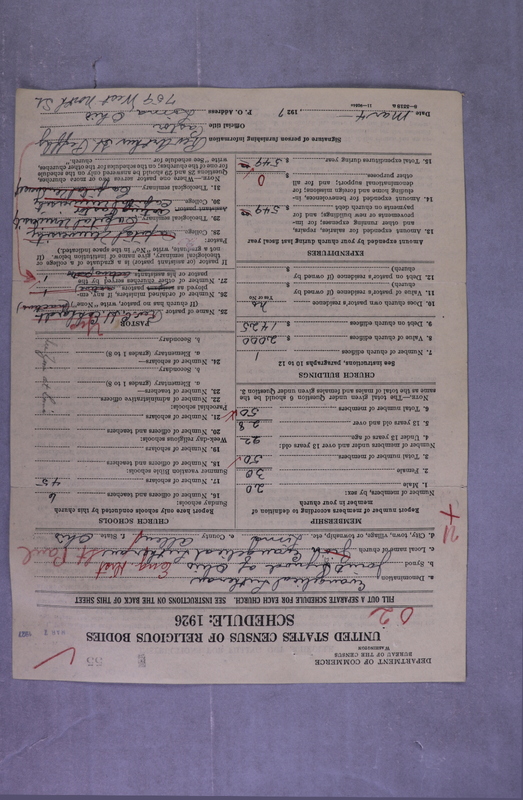 55
DEPARTMENT OF COMMERCE
BUREAU OF THE CENSUS
WASHINGTON
UNITED STATES CENSUS OF RELIGIOUS BODIES
SCHEDULE: 1926
02
FILL OUT A SEPARATE SCHEDULE FOR EACH CHURCH. SEE INSTRUCTIONS ON THE BACK OF THIS SHEET
a. Denomination Evangelical Lutheran
b. Synod Joint Synod of Ohio
c. Local name of church Evangelical Lutheran St Paul
d. City, town, village, or township, etc. Lima e. County Allen f. State Ohio
MEMBERSHIP
Report here membership according to definition of member in your church
Number of members, by sex:
1. Male 20
2. Female 30
3. Total number of members 50
Number of members under and over 13 years old:
4. Under 13 years of age 22
5. 13 years old and over 28
6. Total number of members 50
NOTE.—The total given under Question 6 should be the same as the total of males and females given under Question 3.
CHURCH BUILDINGS
See instructions, paragraphs 10 to 12
7. Number of church edifices 1
8. Value of church edifices $ 2,000
9. Debt on church edifices $ 1425
10. Does church own pastor's residence No
Yes or No
11. Value of pastor's residence (if owned by church) $
12. Debt on pastor's residence (if owned by church) $
EXPENDITURES
Amount expended by your church during last fiscal year
13. Amount expended for salaries, repairs, and other running expenses; for improvements or new building; and for payments on church debt $ 549
14. Amount expended for benevolence, including home and foreign missions; for denominational support; and for all other purposes $ 0
15. Total expenditures during year $ 549
CHURCH SCHOOLS
Report here only schools conducted by this church
Sunday schools:
16. Number of officers and teachers 6
17. Number of scholars 45
Summer vacation Bible schools:
18. Number of officers and teachers
19. Number of scholars
Week-day religious schools:
20. Number of officers and teachers
21. Number of scholars
Parochial schools:
22. Number of administrative officers
23. Number of teachers—
a. Elementary (grades 1 to 8)
b. Secondary
24. Number of scholars—
a. Elementary (grades 1 to 8)
b. Secondary
PASTOR
25. Name of pastor
(If church has no pastor, write "None")
26. Number of ordained ministers, if any, employed as assistant pastors
27. Number of other churches served by the pastor or his assistants 1
If pastor (or assistant pastor) is a graduate of a college or theological seminary, give name in space below. (If not a graduate, write "No" in the space indicated.)
Pastor:
28. College Capital University
29. Theological seminary Capital University
Assistant pastor:
30. College
31. Theological seminary
NOTE.—Where one pastor serves two or more churches, Questions 28 and 29 should be answered only on the schedule for one of the churches; on the schedules for the other churches, write "See schedule for church."
Signature of person furnishing information
Official title Pastor
P. O. Address Lima Ohio
759 West North St
Date Mar 4 1927